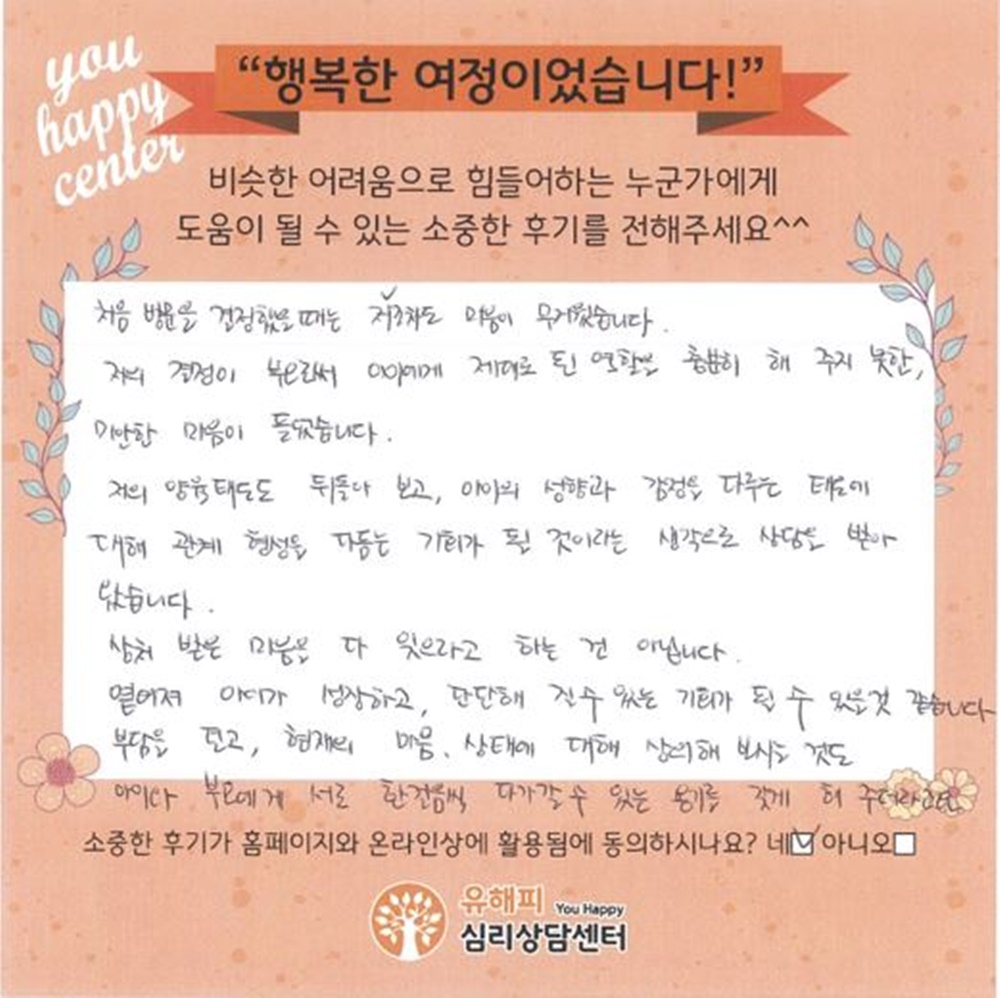 you
happy
center
“행복한 여정이었습니다!”
비슷한 어려움으로 힘들어하는 누군가에게
도움이 될 수 있는 소중한 후기를 전해주세요^^
처음 방문을 결정했을 때는 저조차도 마음이 무거웠습니다.
저의 결정이 부모로써 아이에게 제대로 된 역할을 충분히 해 주지 못한,
미안한 마음이 들었습니다.
저의 양육태도도 뒤돌아 보고, 아이의 성향과 감정을 다루는 태도에
대해 관계 형성을 다듬는 기회가 될 것이라는 생각으로 상담을 받아
왔습니다.
상처 받은 마음을 다 잊으라고 하는 건 아닙니다.
옅어져 아이가 성장하고, 단단해 질 수 있는 기회가 될 수 있을것 같습니다
부담을 덜고, 현재의 마음, 상태에 대해 상의해 보시는 것도
아이나 부모에게 서로 한걸음씩 다가갈 수 있는 용기를 갖게 해
소중한 후기가 홈페이지와 온라인상에 활용됨에 동의하시나요? 네☑ 아니오☐
유해피 You Happy
심리상담센터